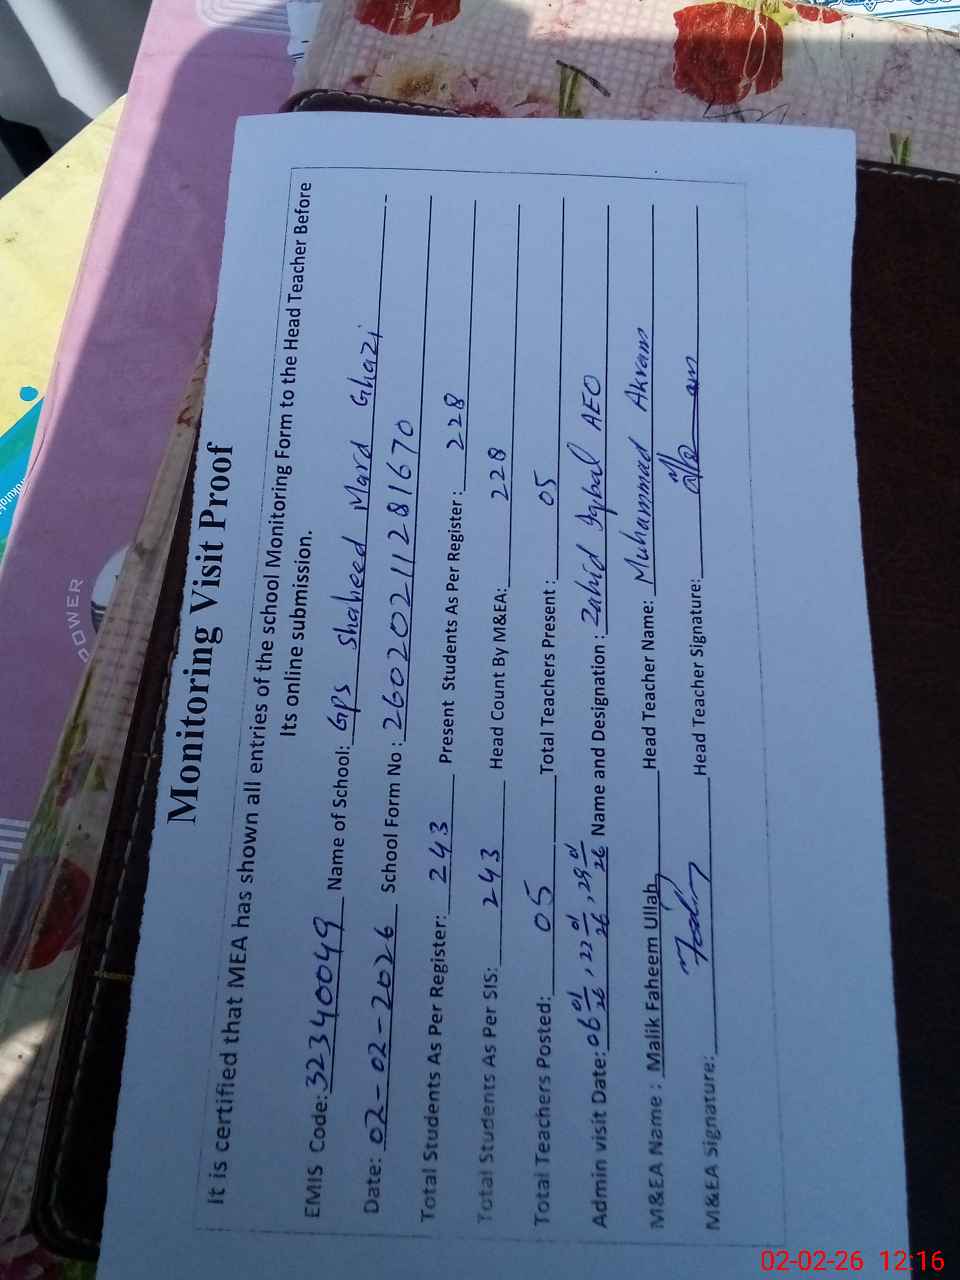 Monitoring Visit Proof
It is certified that MEA has shown all entries of the school Monitoring Form to the Head Teacher Before
Its online submission.
EMIS Code: 32340049 Name of School: GPS Shaheed Mard Ghazi
Date: 02-02-2026 School Form No : 2602021128 1670
Total Students As Per Register: 243 Present Students As Per Register : 228
Total Students As Per SIS: 243 Head Count By M&EA: 228
Total Teachers Posted: 05 Total Teachers Present : 05
Admin visit Date: 06 01/26, 22 01/26, 29 01/26 Name and Designation : Zahid Iqbal AEO
M&EA Name : Malik Faheem Ullah Head Teacher Name: Muhammad Akram
M&EA Signature: Head Teacher Signature:
POWER
02-02-26 12:16